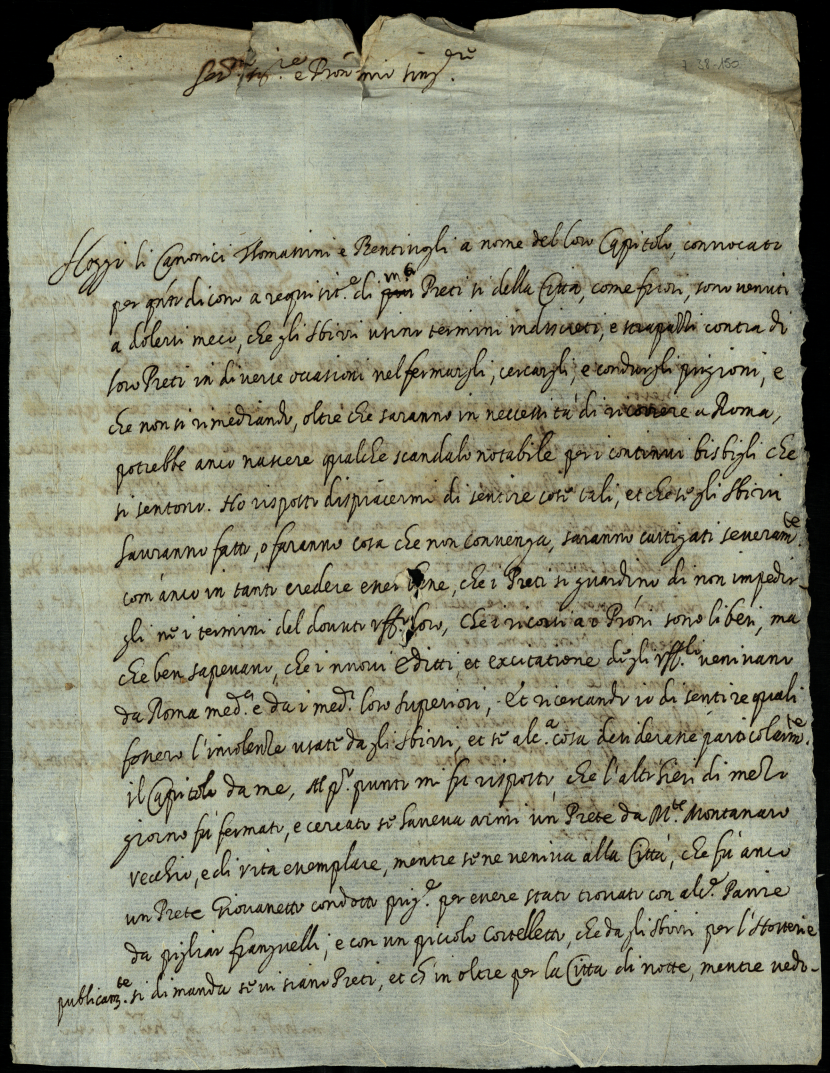 7-38-150
Ser.mo Sig.re e Pron mio sing.re
Hoggi li Canonici Thomassini e Bentivogli a nome del loro Capitolo, convocato
per q.nto dicono a requisit.e di m.ti Preti si della Città, come fuori, sono venuti
a dolersi meco, che gli sbirri usino termini indiscreti, e strapazzi contra di
loro Preti in diverse occasioni nel fermargli, cercargli, e condurgli prigioni, e
che non si rimediando, oltre che saranno in necessità di ricorrere a Roma,
potrebbe anco nascere qualche scandalo notabile per i continui bisbigli che
si sentono. Ho risposto dispiacermi di sentire cose tali, et che se gli sbirri
havranno fatto, o faranno cosa che non convenga, saranno castigati severam.te
com'anco in tanto credere esser bene, che i Preti si guardino di non impedir-
gli nè i termini del dovuto uff.o loro, che i ricorsi a Proni sono liberi, ma
che ben sapevano, che i nuovi Editti, et excitatione degli uff.li venivano
da Roma med.a e da i med.i loro superiori, Et ricercando io di sentire quali
fossero l'insolenze usate dagli sbirri, et se alc.a cosa desiderasse particolarm.te
il Capitolo da me, Al p.o punto mi fu risposto, che l'altr'hieri di mezo
giorno fù fermato, e cercato se haveva armi un Prete da M.te Montanaro
vecchio, e di vita exemplare, mentre se ne veniva alla Città, che fù anco
un Prete Giovanetto condotto prig.e per essere stato trovato con alc.e Panie
da pigliar franguelli, e con un piccolo Cortelletto, che dagli sbirri per l'Hosterie
publicam.te si dimanda se vi siano Preti, et ch' in oltre per la Città di notte, mentre vedo-